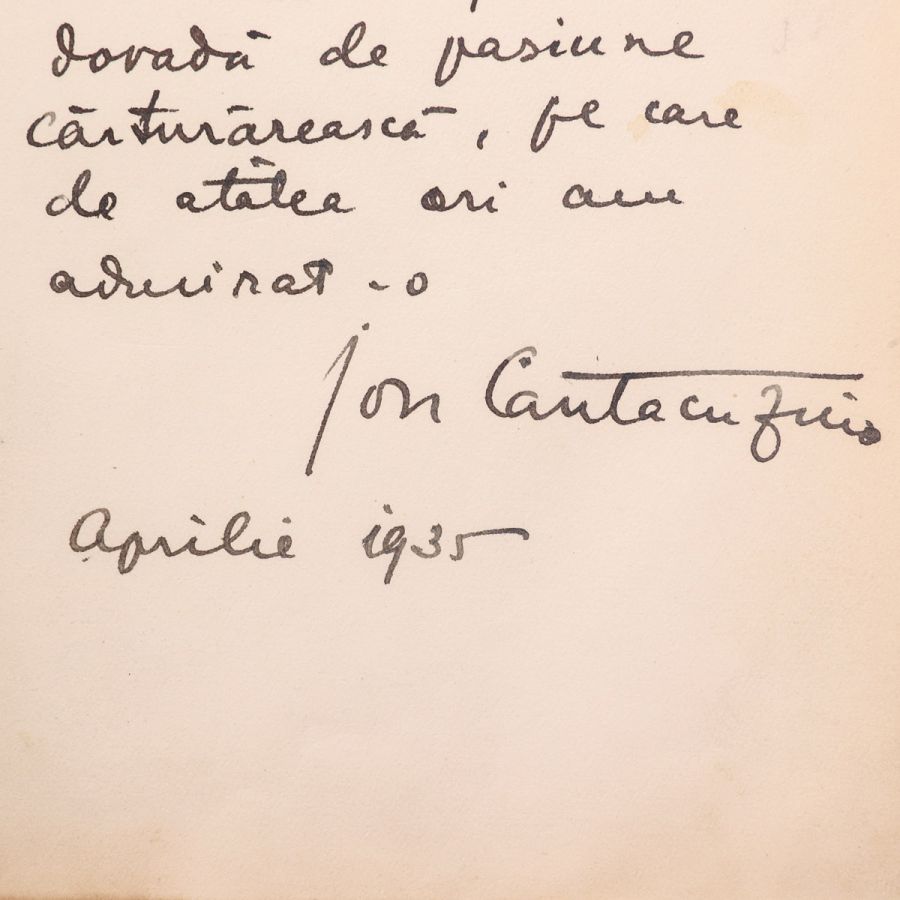 dovadă de pasiune
cărturărească, pe care
de atâtea ori am
admirat-o
Ion Cantacuzino
Aprilie 1935